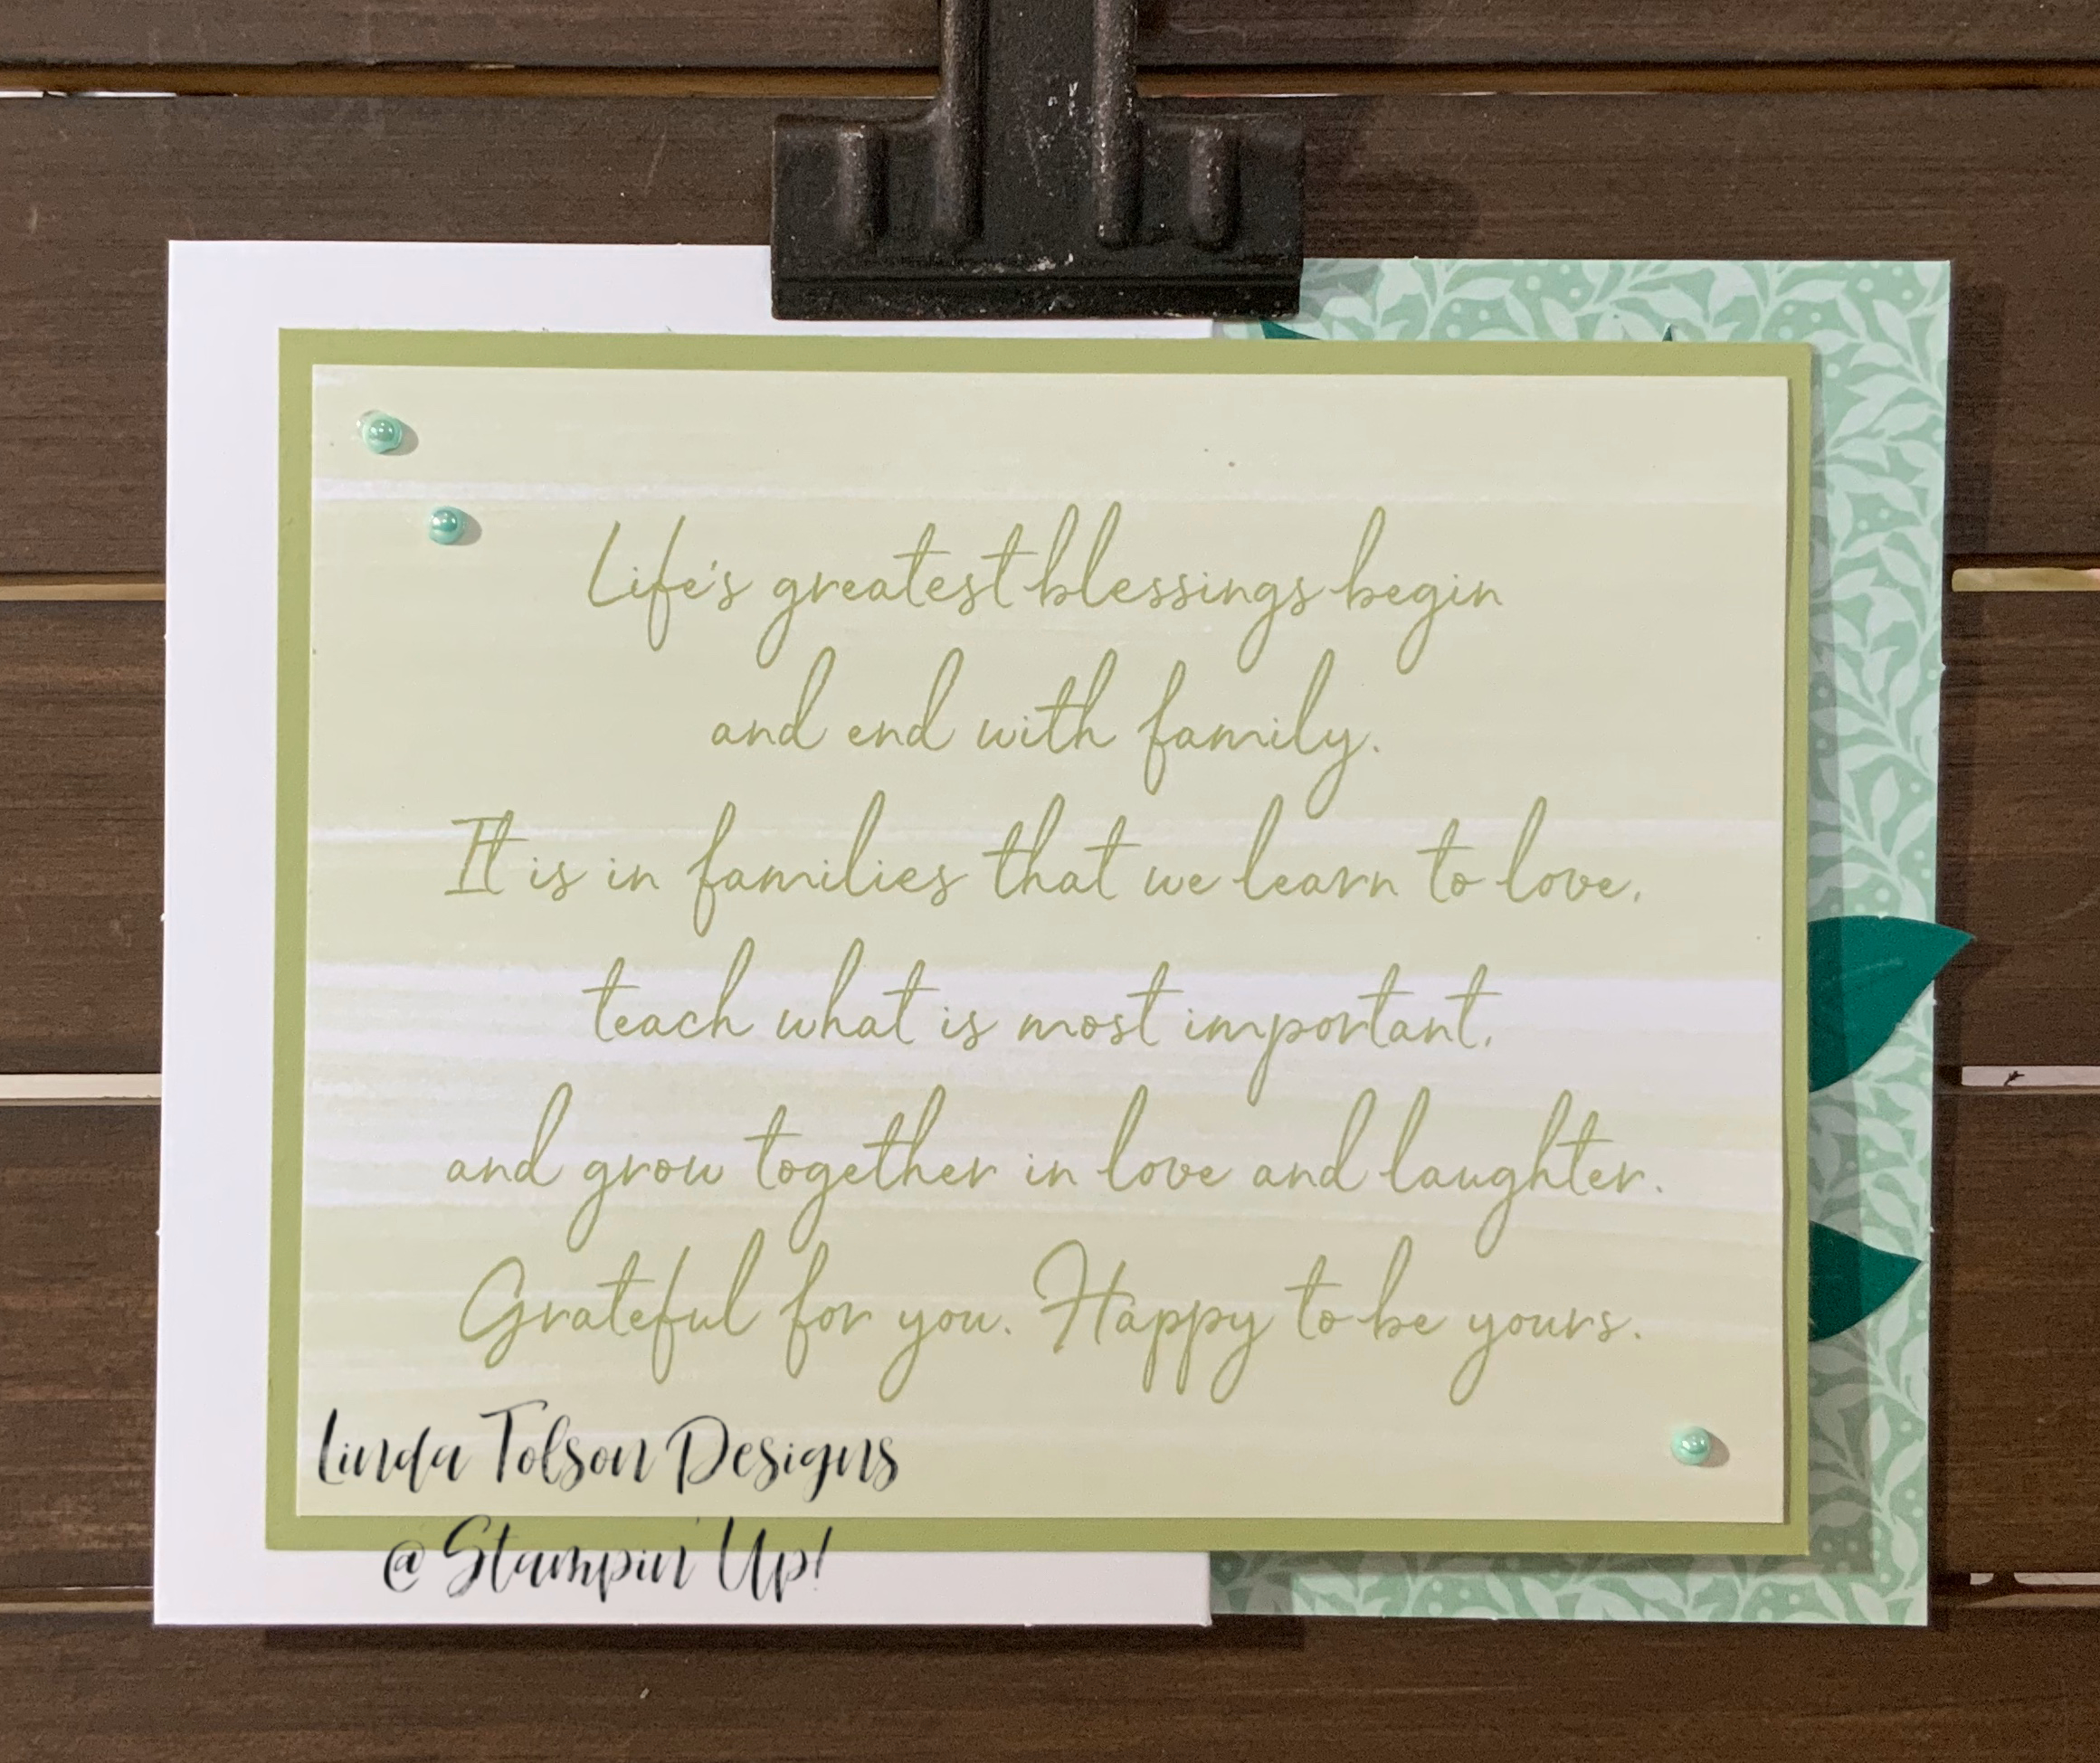 Life's greatest blessings begin
and end with family.
It is in families that we learn to love,
teach what is most important,
and grow together in love and laughter.
Grateful for you. Happy to be yours.
Linda Tolson Designs
@ Stampin' Up!